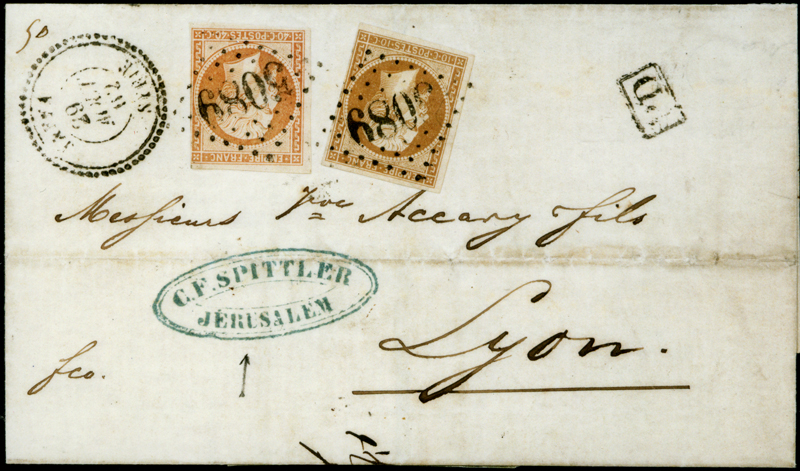 50
JAFFA SYRIE
29 62
40 C. POSTES 40 C.
EMPIRE FRANC.
3089
10 C. POSTES 10 C.
EMPIRE FRANC.
3089
P.D.
Messieurs Vve Accary fils
C.F. SPITTLER
JÉRUSALEM
Lyon.
fco.